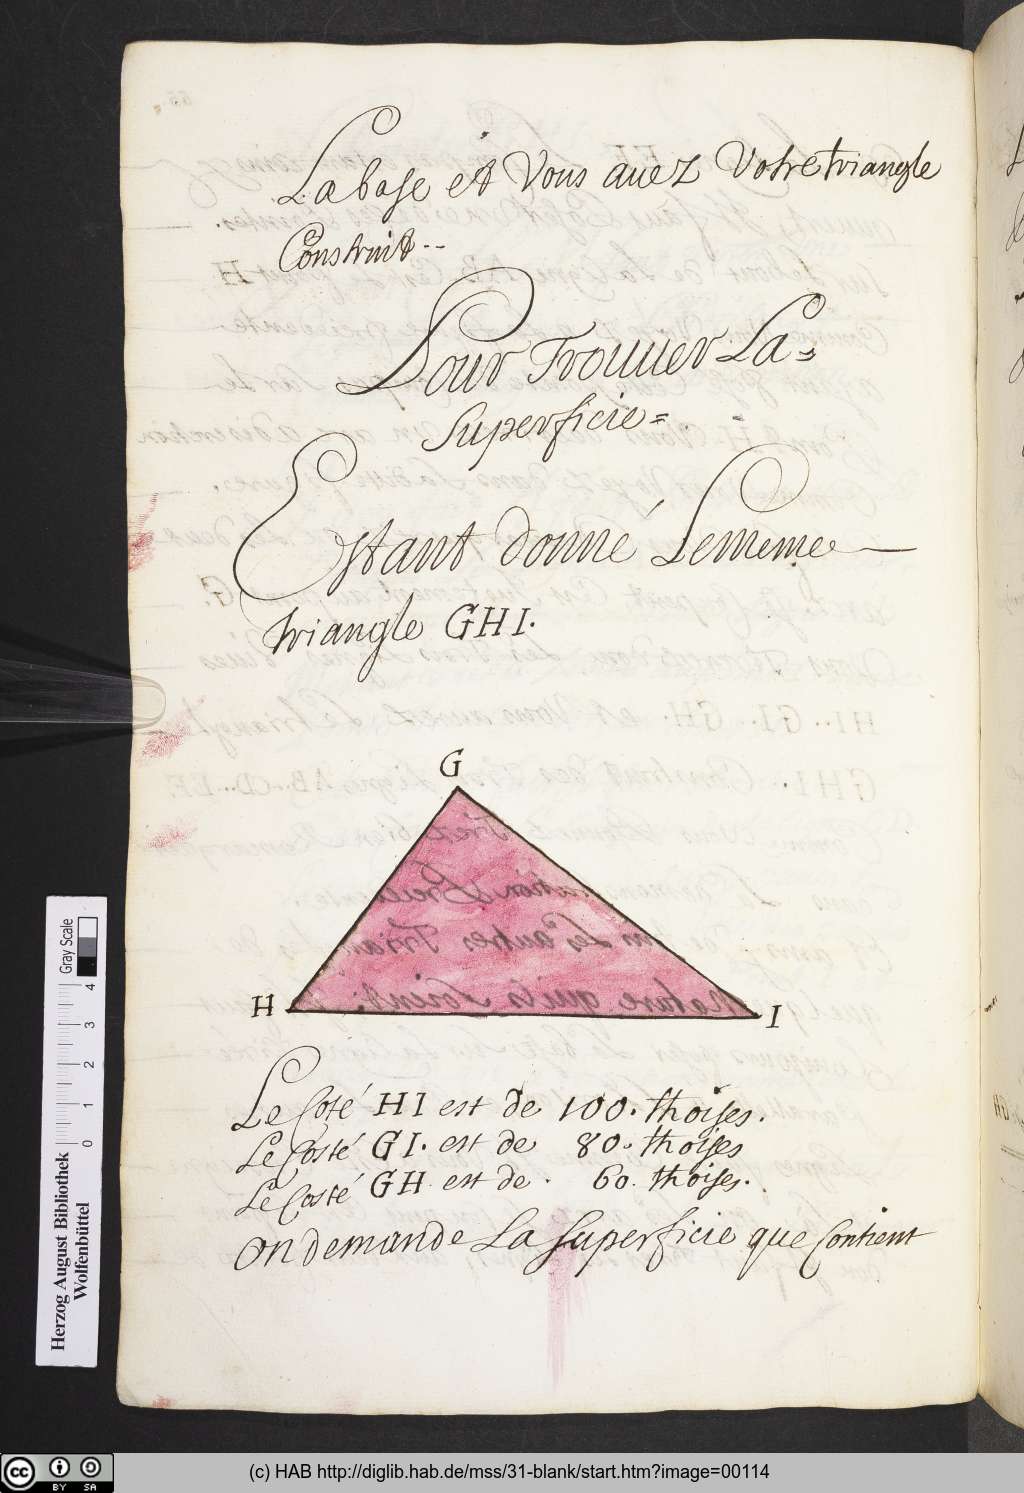 La base et Vous auez Votre triangle
Construit..
Pour Trouuer La=
Superficie=
Estant donné Le meme
triangle GHI.
G
H
I
Le Coté HI est de 100. thoises.
Le Costé GI. est de 80. thoises
Le Costé GH est de. 60. thoises.
on demande La superficie que Contient
Gray Scale
0 1 2 3 4
Herzog August Bibliothek
Wolfenbüttel
cc BY SA
(c) HAB http://diglib.hab.de/mss/31-blank/start.htm?image=00114